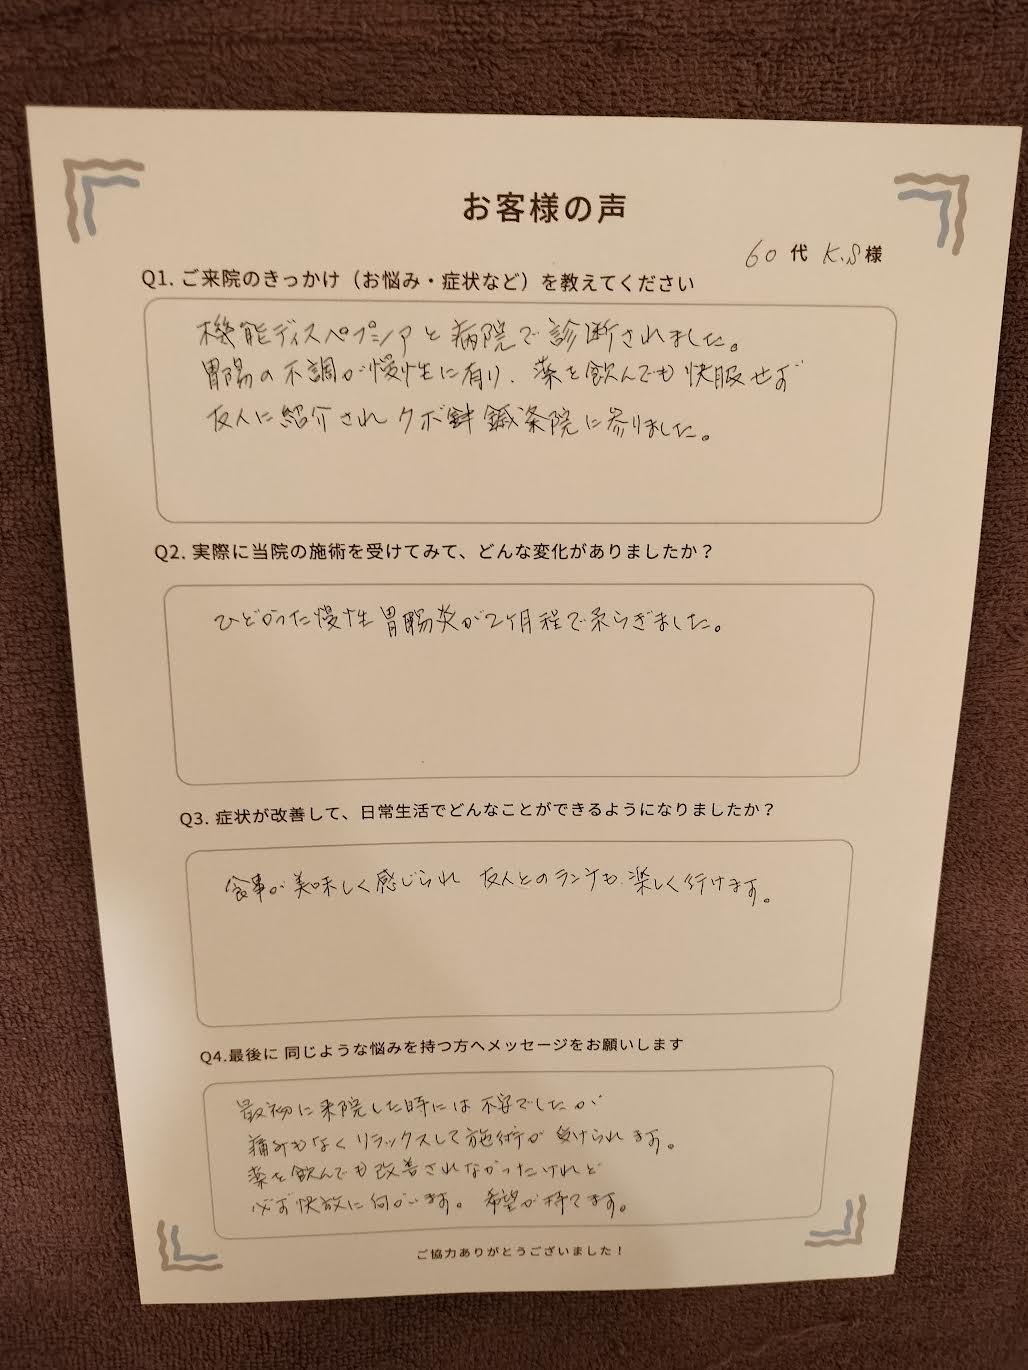 お客様の声
60代 K.S様
Q1. ご来院のきっかけ（お悩み・症状など）を教えてください
機能ディスペプシアと病院で診断されました。
胃腸の不調が慢性に有り、薬を飲んでも快服せず
友人に紹介されクボ鍼灸院に参りました。
Q2. 実際に当院の施術を受けてみて、どんな変化がありましたか？
ひどかった慢性胃腸炎が2ヶ月程で柔らぎました。
Q3. 症状が改善して、日常生活でどんなことができるようになりましたか？
食事が美味しく感じられ 友人とのランチも楽しく行けます。
Q4.最後に 同じような悩みを持つ方へメッセージをお願いします
最初に来院した時には不安でしたが
痛みもなくリラックスして施術が受けられます。
薬を飲んでも改善されなかったけれど
必ず快放に向かいます。希望が持てます。
ご協力ありがとうございました！